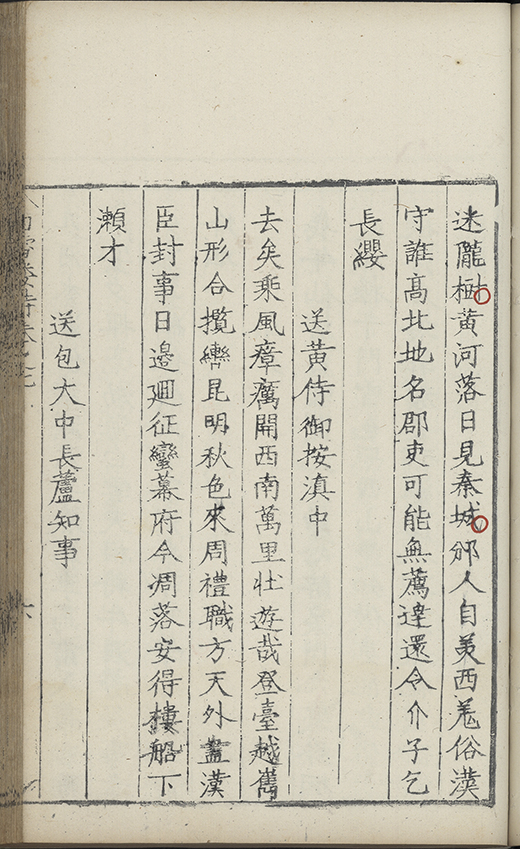 迷隴樹黃河落日見秦城邠人自羙西羌俗漢
守誰高北地名郡吏可能無薦達還令介子乞
長纓
送黃侍御按滇中
去矣乘風瘴癘開西南萬里壯遊哉登臺越嶲
山形合攬轡昆明秋色來周禮職方天外盡漢
臣封事日邊廻征蠻幕府今凋落安得樓船下
瀨才
送包大中長蘆知事